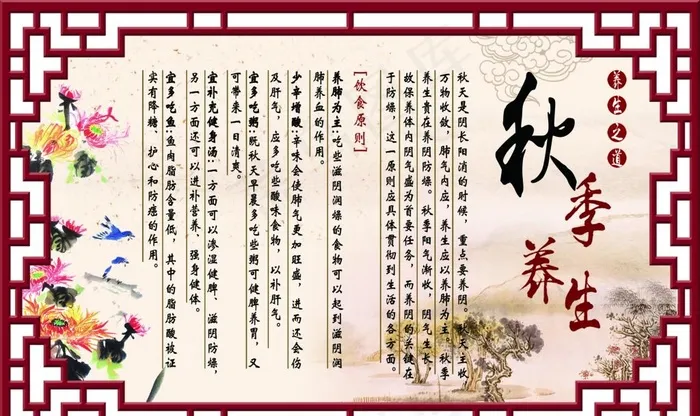 养生之道
秋季养生
秋天是阴长阳消的时候，重点要养阴。秋天主收，
万物收敛，肺气内应，养生应以养肺为主。秋季
养生贵在养阴防燥。秋季阳气渐收，阴气生长，
故保养体内阴气盛为首要任务，而养阴的关键在
于防燥，这一原则应具体贯彻到生活的各方面。
[饮食原则]
养肺为主：吃些滋阴润燥的食物可以起到滋阴润
肺养血的作用。
少辛增酸：辛味会使肺气更加旺盛，进而还会伤
及肝气，应多吃些酸味食物，以补肝气。
宜多吃粥：既秋天早晨多吃些粥可健脾养胃，又
可带来一日清爽。
宜补充健身汤：一方面可以渗湿健脾、滋阴防燥，
另一方面还可以进补营养、强身健体。
宜多吃鱼：鱼肉脂肪含量低，其中的脂肪酸被证
实有降糖、护心和防癌的作用。